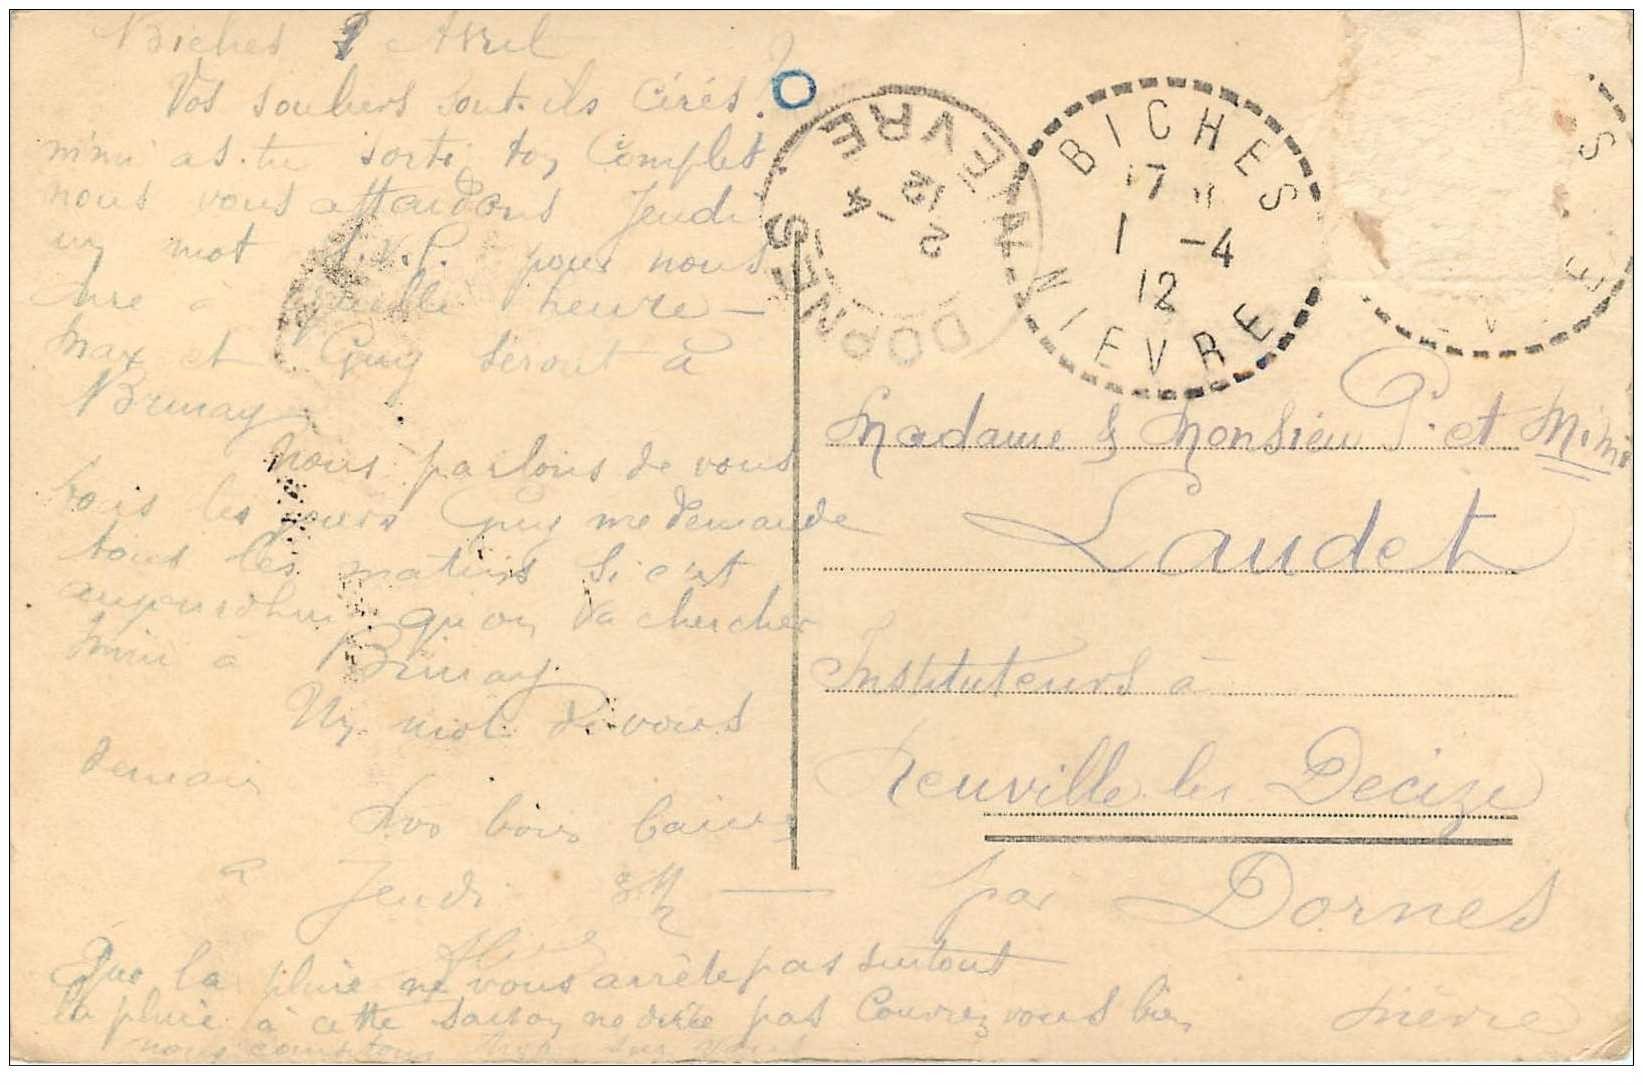 Biches 1 Avril
Vos souliers sont-ils cirés ?
mimi as-tu sorti ton complet.
nous vous attendons Jeudi
un mot S.V.P. pour nous
dire à quelle heure —
Max et Guy seront à
Brinay
Nous parlons de vous
tous les jours Guy me demande
tous les matins si c'est
aujourdhui qu'on va chercher
mimi à Brinay
Un mot de vous
demain
Nos bons baisers
a Jeudi
Que la pluie ne vous arrête pas surtout
la pluie à cette saison ne dure pas Couvrez vous bien
nous comptons trop sur vous
DORNES
NIEVRE
2 -4
12
BICHES
17
1 -4
12
NIEVRE
Madame & Monsieur P. et Mimi
Laudet
Instituteurs à
Neuville les Decize
par Dornes
Nièvre